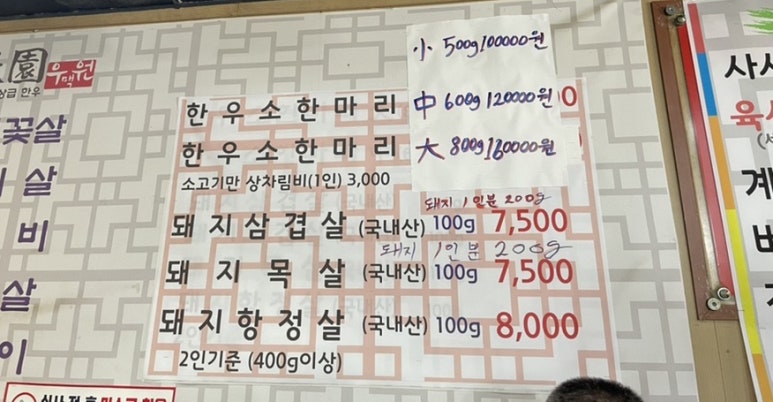 園 우맥원
상급 한우
꽃살
살
비
살
이
小 500g 100000원
한우소한마리 中 600g 120000원 0
한우소한마리 大 800g 160000원
소고기만 상차림비(1인) 3,000
돼지 1인분 200g
돼지삼겹살 (국내산) 100g 7,500
돼지 1인분 200g
돼지목살 (국내산) 100g 7,500
돼지항정살 (국내산) 100g 8,000
2인기준 (400g이상)
사
육
계